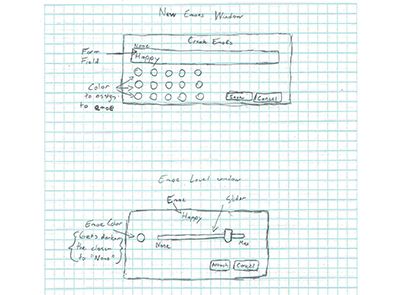 New Emoes Window
Create Emoto
Form
Field
Name
Happy
Color
to assign
to emoe
Create
Cancel
Emoe Level window
Emoe
Slider
Happy
Emoe Color
Gets darker
the closer
to "None"
None
Max
Attach
Cancel